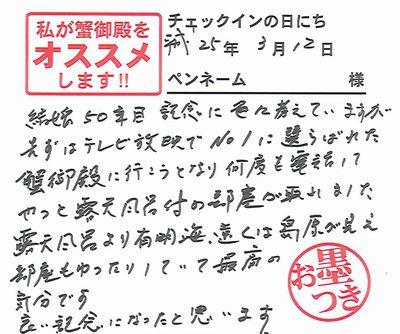 私が蟹御殿を
オススメ
します!!
チェックインの日にち
25年 3月12日
ペンネーム 様
結婚50年目 記念に色々考えていますが
先ずはテレビ放映でNo1に選らばれた
蟹御殿に行こうとなり何度も電話して
やっと露天風呂付の部屋が取れました
露天風呂より有明海、遠くは島原が見え
部屋もゆったりしていて最高の
気分です
良い記念になったと思います
お墨つき